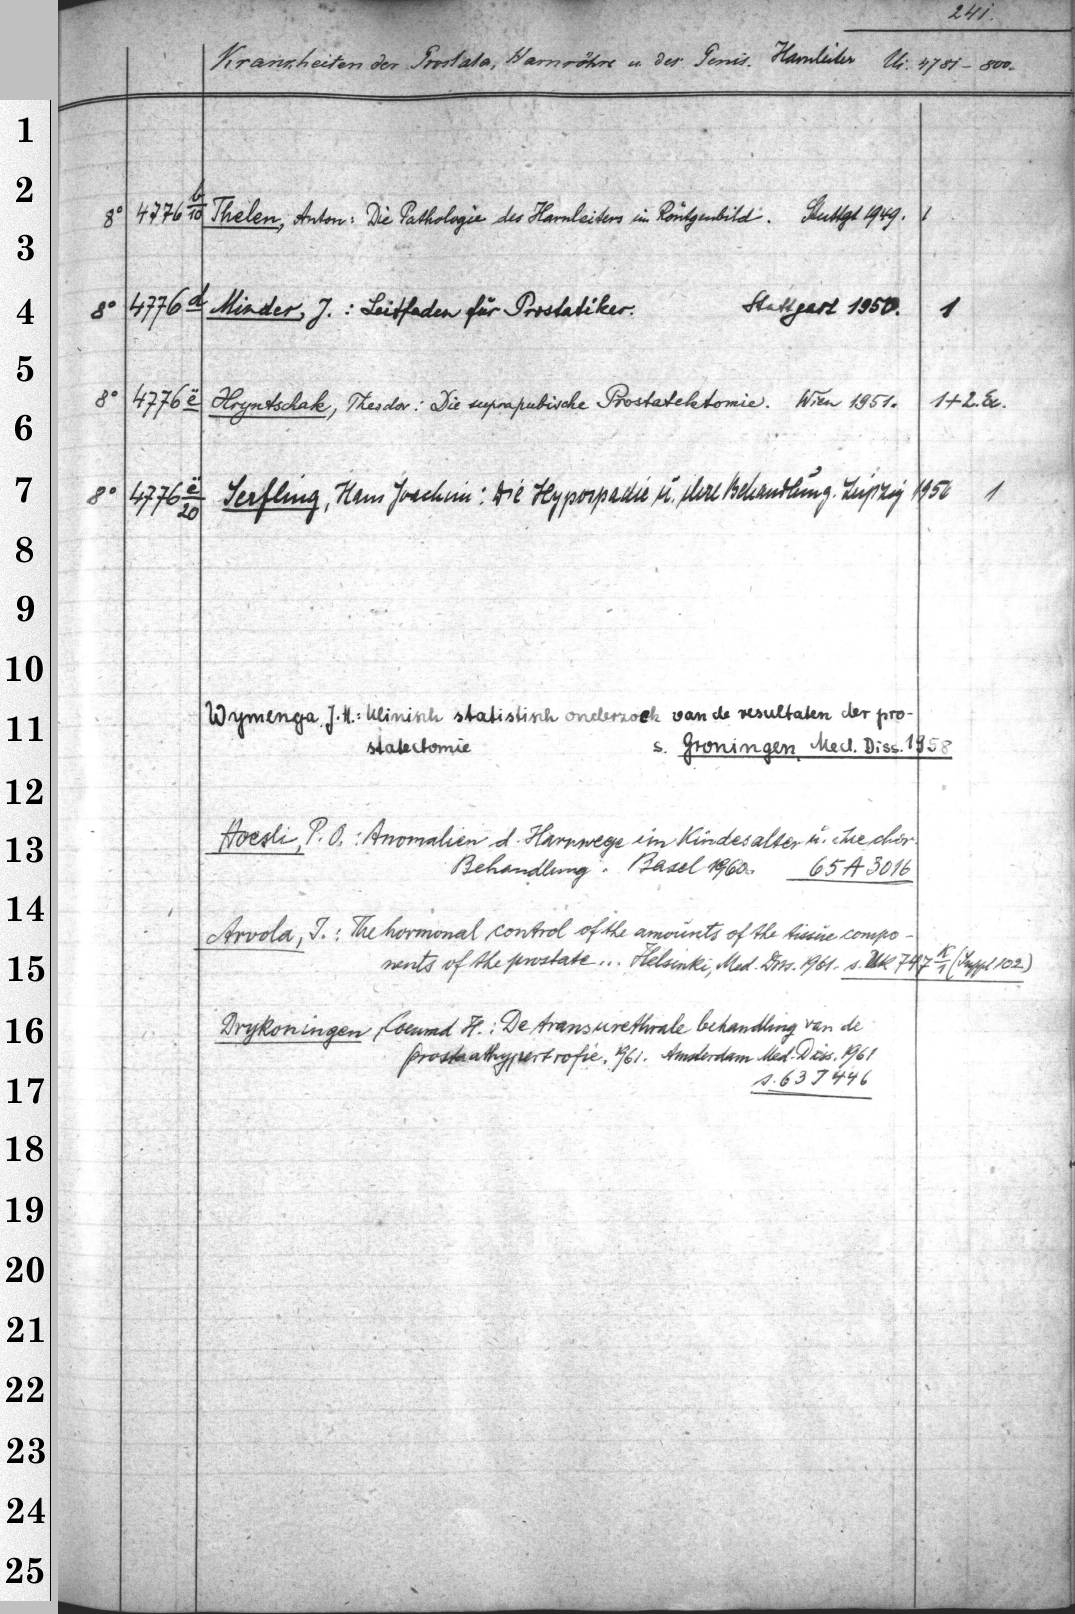 241.
Krankheiten der Prostata, Harnröhre u. des Penis. Harnleiter Ui. 4781-800.
1
2
8° 4776 b/10 Thelen, Anton: Die Pathologie des Harnleiters im Röntgenbild. Stuttgt 1949. 1
3
8° 4776 d Minder, J.: Leitfaden für Prostatiker. Stuttgart 1950. 1
4
5
8° 4776 ë Hryntschak, Theodor: Die suprapubische Prostatektomie. Wien 1951. 1+2. Ex.
6
8° 4776 ë/20 Serfling, Hans Joachim: Die Hypospadie u. ihre Behandlung. Leipzig 1956 1
7
8
9
10
Wymenga, J.H.: Klinisch statistisch onderzoek van de resultaten der pro-
11
statectomie s. Groningen, Med. Diss. 1958
12
Hoesli, P. O.: Anomalien d. Harnwege im Kindesalter u. ihre chir.
13
Behandlung. Basel 1960. 65 A 3016
14
Arvola, I.: The hormonal control of the amounts of the tissue compo-
15
nents of the prostate... Helsinki, Med. Diss. 1961. s. UK 747 K/1 (Suppl 102)
16
Drykoningen, Coenrad H.: De transurethrale behandling van de
prostaathypertrofie. 1961. Amsterdam Med. Diss. 1961
17
s. 63 J 446
18
19
20
21
22
23
24
25